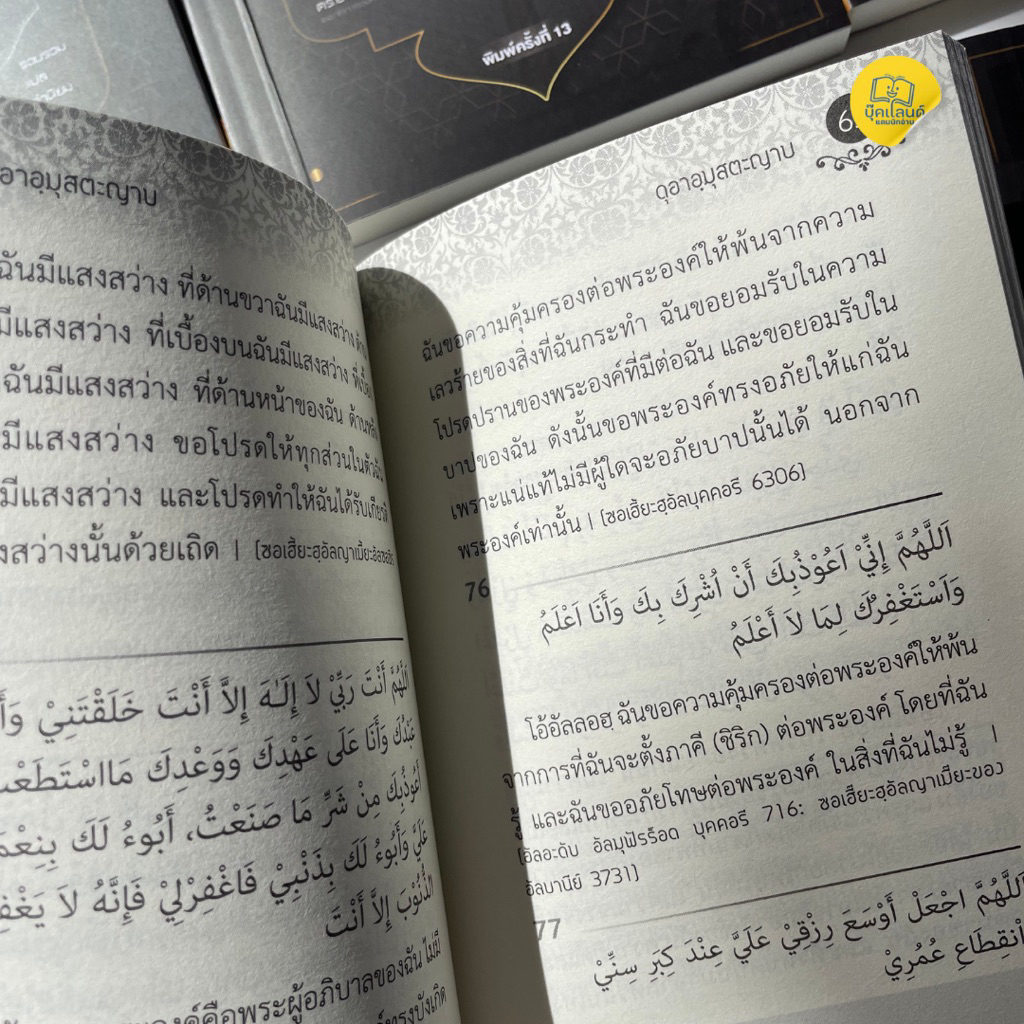 พิมพ์ครั้งที่ 13
บุ๊คแลนด์
แดนนักอ่าน
อาอุมุสตะญาบ
ฉันมีแสงสว่าง ที่ด้านขวาฉันมีแสงสว่าง
มีแสงสว่าง ที่เบื้องบนฉันมีแสงสว่าง
ฉันมีแสงสว่าง ที่ด้านหน้าของฉัน
มีแสงสว่าง ขอโปรดให้ทุกส่วนในตัวฉัน
มีแสงสว่าง และโปรดทำให้ฉันได้รับ
งสว่างนั้นด้วยเถิด | (ซอเฮี้ยะฮฺอัลญาเมี๊ยะอัสซอ
76
اَللَّهُمَّ أَنْتَ رَبِّيْ لاَ إِلَـٰهَ إِلاَّ أَنْتَ خَلَقْتَنِيْ وَأَ
عَبْدُكَ وَأَنَا عَلَى عَهْدِكَ وَوَعْدِكَ مَااسْتَطَعْتُ
أَعُوْذُبِكَ مِنْ شَرِّ مَا صَنَعْتُ، أَبُوءُ لَكَ بِنِعْمَ
عَلَيَّ وَأَبُوءُ لَكَ بِذَنْبِيْ فَاغْفِرْلِيْ فَإِنَّهُ لاَ يَغْفِ
الذُّنُوْبَ إِلاَّ أَنْتَ
องค์คือพระผู้อภิบาลของฉัน ไม่มี
ทรงบังเกิด
ดุอาอุมุสตะญาบ
ฉันขอความคุ้มครองต่อพระองค์ให้พ้นจากความ
เลวร้ายของสิ่งที่ฉันกระทำ ฉันขอยอมรับในความ
โปรดปรานของพระองค์ที่มีต่อฉัน และขอยอมรับใน
บาปของฉัน ดังนั้นขอพระองค์ทรงอภัยให้แก่ฉัน
เพราะแน่แท้ไม่มีผู้ใดจะอภัยบาปนั้นได้ นอกจาก
พระองค์เท่านั้น | (ซอเฮี้ยะฮฺอัลบุคคอรี 6306)
اَللَّهُمَّ إِنِّيْ اَعُوْذُبِكَ أَنْ اُشْرِكَ بِكَ وَأَنَا اَعْلَمُ
وَاَسْتَغْفِرُكَ لِمَا لاَ أَعْلَمُ
โอ้อัลลอฮฺ ฉันขอความคุ้มครองต่อพระองค์ให้พ้น
จากการที่ฉันจะตั้งภาคี (ชิริก) ต่อพระองค์ โดยที่ฉัน
และฉันขออภัยโทษต่อพระองค์ ในสิ่งที่ฉันไม่รู้ |
(อัลอะดับ อัลมุฟิรร็อด บุคคอรี 716: ซอเฮี้ยะฮฺอัลญาเมี๊ยะของ
อัลบานีย์ 3731)
77
اَللَّهُمَّ اجْعَلْ أَوْسَعَ رِزْقِيْ عَلَيَّ عِنْدَ كِبَرِ سِنِّيْ
اْنقِطَاعِ عُمُرِيْ